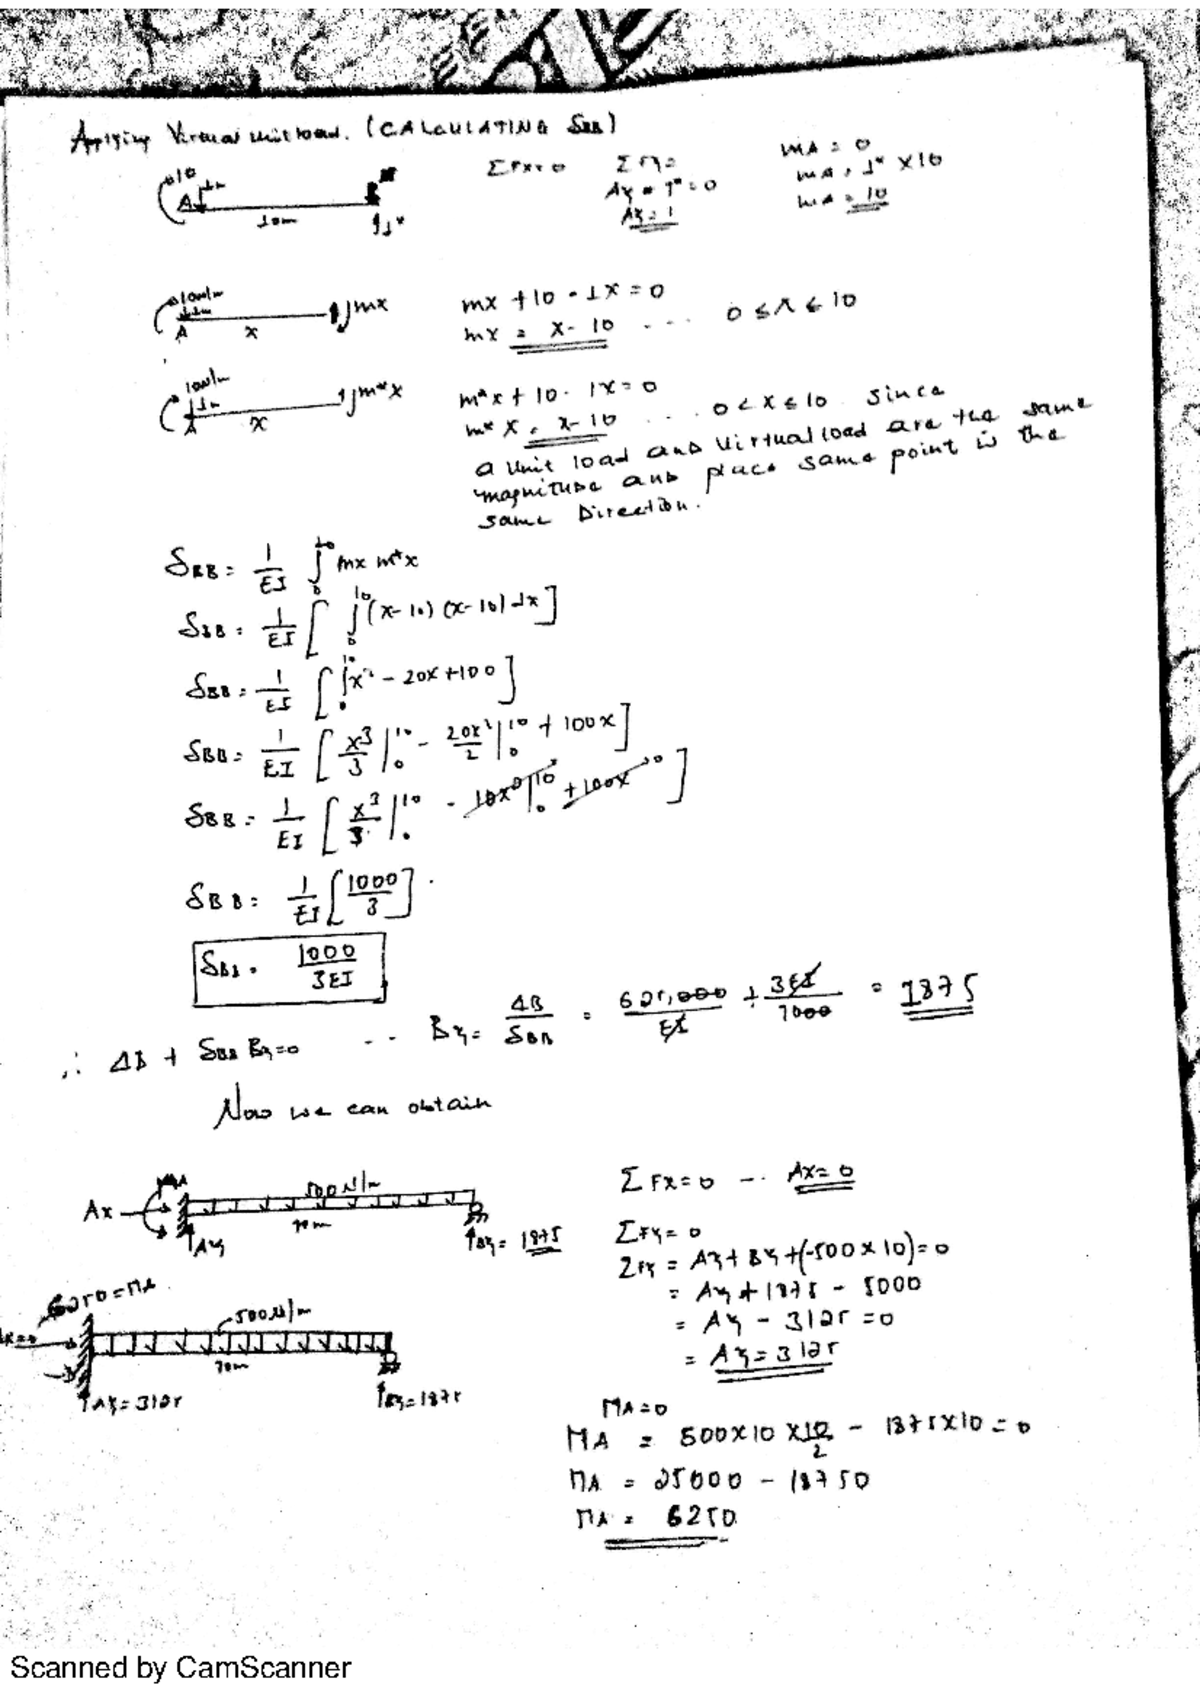 Applying Virtual unit load. (CALCULATING SBB)
ΣFx = 0
ΣFy =
Ay - 1* = 0
Ay = 1
MA = 0
MA = 1* × 10
MA = 10
10
A
10m
1*
A
x
mx
mx + 10 - 1x = 0
mx = x - 10 ... 0 ≤ x ≤ 10
A
x
m*x
m*x + 10 - 1x = 0
m* x = x - 10 ... 0 < x ≤ 10 since
a unit load and virtual load are the same
magnitude and place same point is the
same Direction.
SBB = 1/EI ∫₀¹⁰ mx m*x
SBB = 1/EI [ ∫₀¹⁰ (x-10) (x-10) dx ]
SBB = 1/EI [ ∫₀¹⁰ x² - 20x + 100 ]
SBB = 1/EI [ x³/3 |₀¹⁰ - 20x²/2 |₀¹⁰ + 100x ]
SBB = 1/EI [ x³/3 |₀¹⁰ - 10x² |₀¹⁰ + 100x ¹⁰ ]
SBB = 1/EI [ 1000/3 ]
SBB = 1000/3EI
∴ ΔB + SBB By = 0 ... By = ΔB/SBB = 625,000/EI ÷ 3EI/1000 = 1875
Now we can obtain
MA
500 N/m
Ax
10m
Ay
By = 1875
ΣFx = 0 ... Ax = 0
ΣFy = 0
ΣFy = Ay + By + (-500 × 10) = 0
= Ay + 1875 - 5000
= Ay - 3125 = 0
= Ay = 3125
6250 = MA
500N/m
10m
Ay = 3125
By = 1875
MA = 0
MA = 500 × 10 × 10/2 - 1875 × 10 = 0
MA = 25000 - 18750
MA = 6250
Scanned by CamScanner